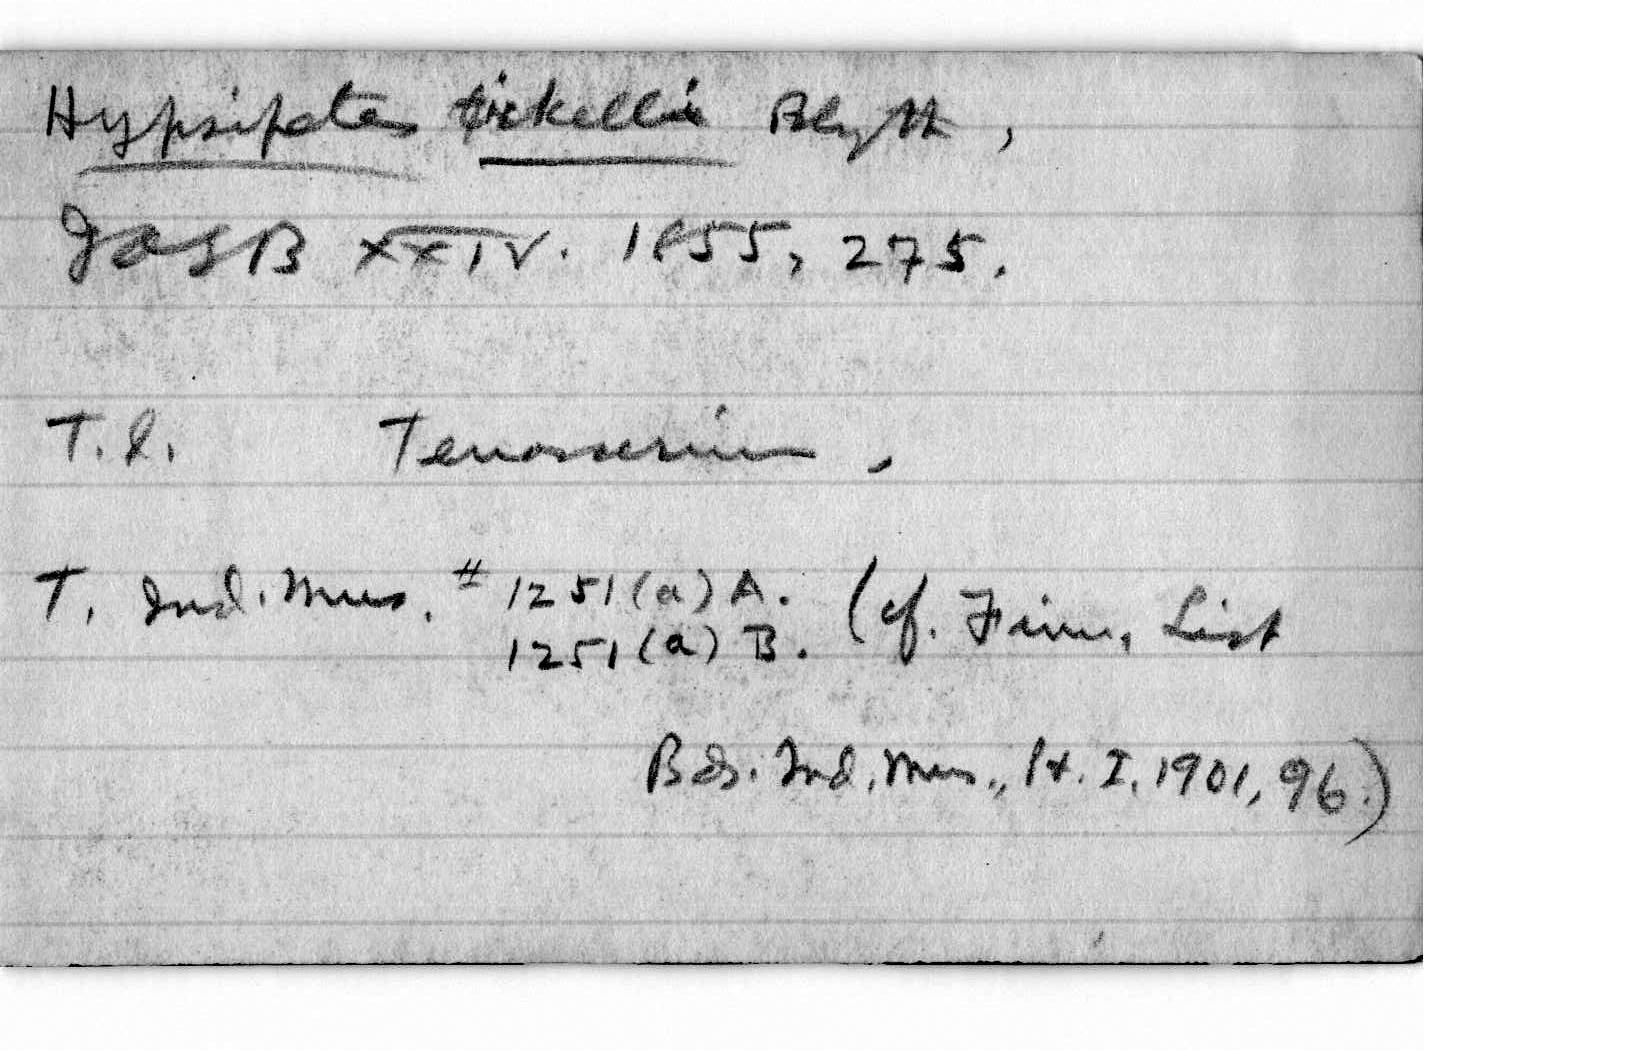 Hypsipetes tickelli Blyth,
JASB XXIV. 1855, 275.
T.l. Tenasserim.
T. Ind. Mus. # 1251(a) A. (cf. Finn, List
1251(a) B.
Bds. Ind. Mus., Pt. I, 1901, 96.)